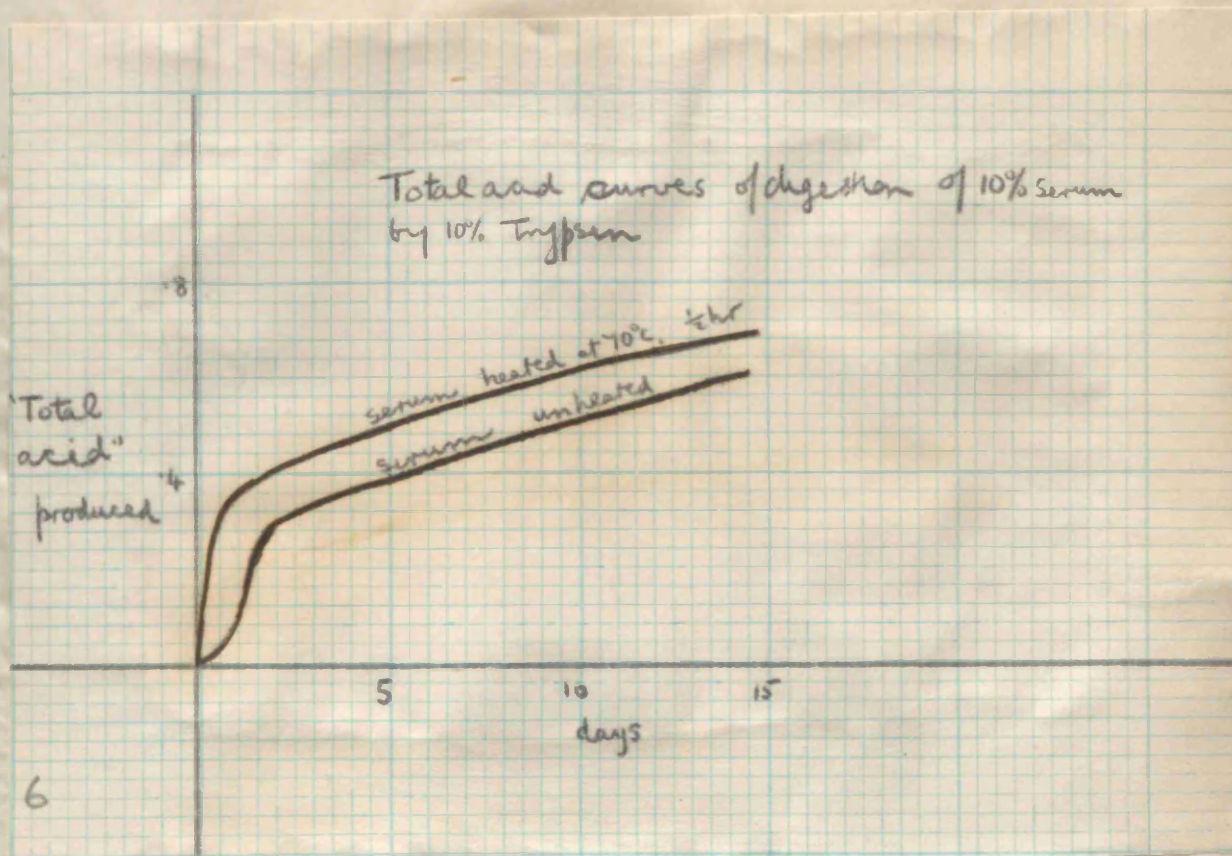 Total acid curves of digestion of 10% serum
by 10% Trypsin
·8
serum heated at 70°C. ½hr
serum unheated
"Total
acid"
produced
·4
5 10 15
days
6